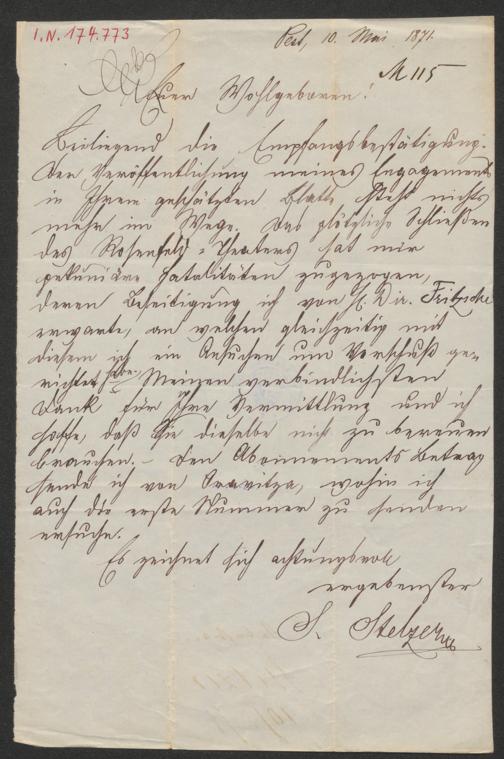 I.N. 174.773
Pest, 10. Mai 1871.
M 115
Euer Wohlgeboren!
Beiliegend die Empfangsbestätigung.
Der Veröffentlichung meines Engagements
in Ihrem geschätzten Blatte steht nichts
mehr im Wege. Das plötzliche Schließen
des Rosenfeld-Theaters hat mir
pekuniäre Fatalitäten zugezogen,
deren Beseitigung ich von H. Dir. Fritzsche
erwarte, an welchen gleichzeitig mit
diesem ich ein Ansuchen um Vorschuß ge-
richtet habe. Meinen verbindlichsten
Dank für Ihre Vermittlung und ich
hoffe, daß Sie dieselbe nicht zu bereuen
brauchen. – Den Abonnements Betrag
sende ich von Oravitza, wohin ich
auch die erste Nummer zu senden
ersuche.
Es zeichnet sich achtungsvoll
ergebenster
S. Stelzer